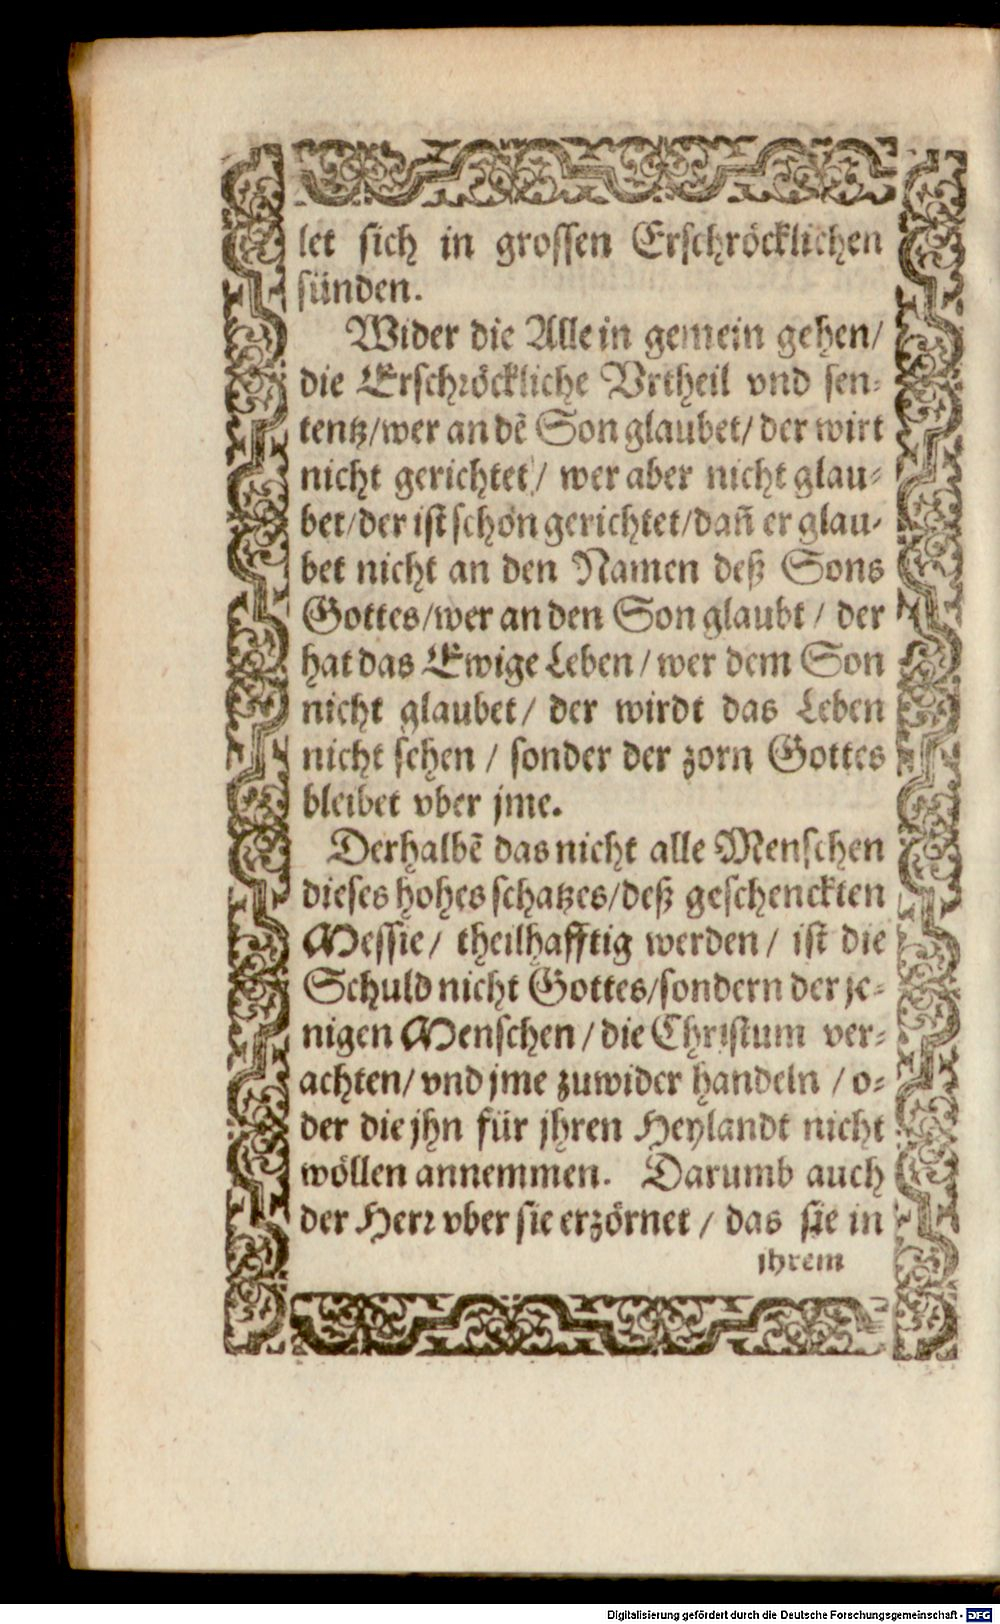 let sich in grossen Erschröcklichen
sünden.
Wider die Alle in gemein gehen/
die Erschröckliche Vrtheil vnd sen-
tentz/wer an dē Son glaubet/ der wirt
nicht gerichtet / wer aber nicht glau-
bet/der ist schon gerichtet/dañ er glau-
bet nicht an den Namen deß Sons
Gottes/wer an den Son glaubt / der
hat das Ewige Leben / wer dem Son
nicht glaubet / der wirdt das Leben
nicht sehen / sonder der zorn Gottes
bleibet vber jme.
Derhalbē das nicht alle Menschen
dieses hohes schatzes/deß geschenckten
Messie/ theilhafftig werden / ist die
Schuld nicht Gottes/sondern der je-
nigen Menschen / die Christum ver-
achten/ vnd jme zuwider handeln / o-
der die jhn für jhren Heylandt nicht
wöllen annemmen. Darumb auch
der Herr vber sie erzörnet / das sie in
jhrem
Digitalisierung gefördert durch die Deutsche Forschungsgemeinschaft - DFG